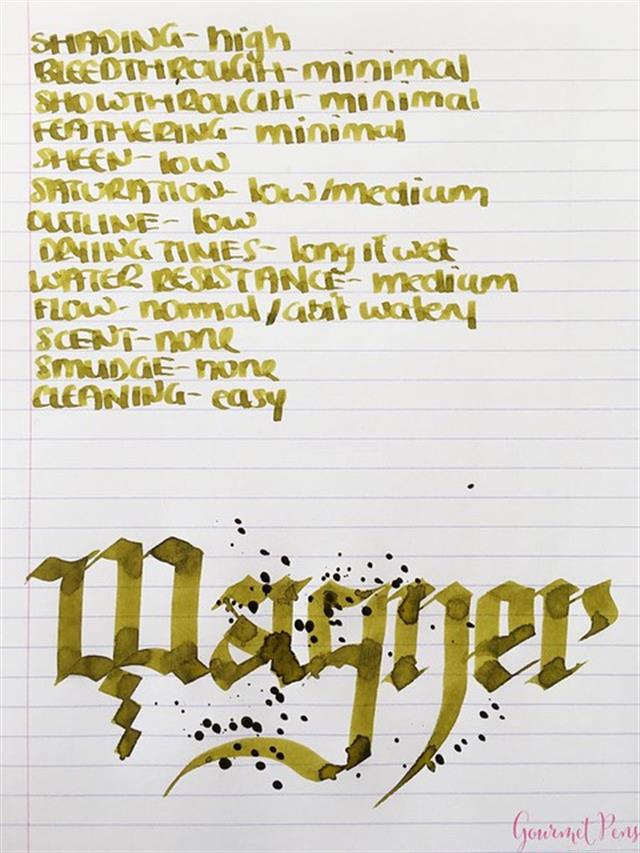 SHADING- high
BLEEDTHROUGH- minimal
SHOWTHROUGH- minimal
FEATHERING- minimal
SHEEN- low
SATURATION- low/medium
OUTLINE- low
DRYING TIMES- long if wet
WATER RESISTANCE- medium
FLOW- normal/abit watery
SCENT- none
SMUDGE- none
CLEANING- easy
Wagner
Gourmet Pens